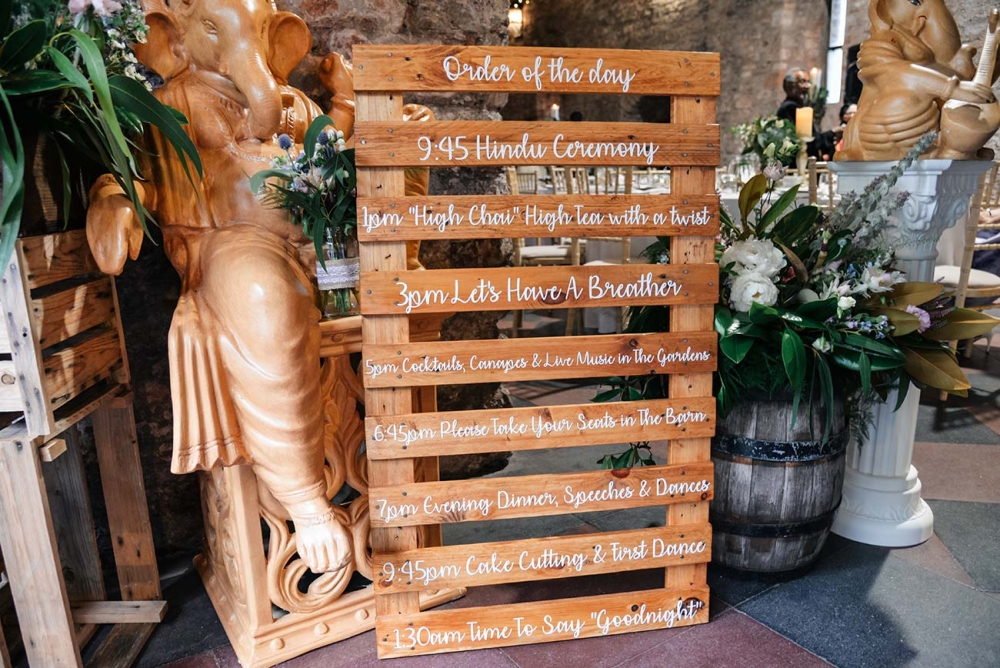 Order of the day
9:45 Hindu Ceremony
1pm "High Chai" High Tea with a twist
3pm Let's Have A Breather
5pm Cocktails, Canapes & Live Music in The Gardens
6:45pm Please Take Your Seats in The Barn
7pm Evening Dinner, Speeches & Dances
9:45pm Cake Cutting & First Dance
1:30am Time To Say "Goodnight"